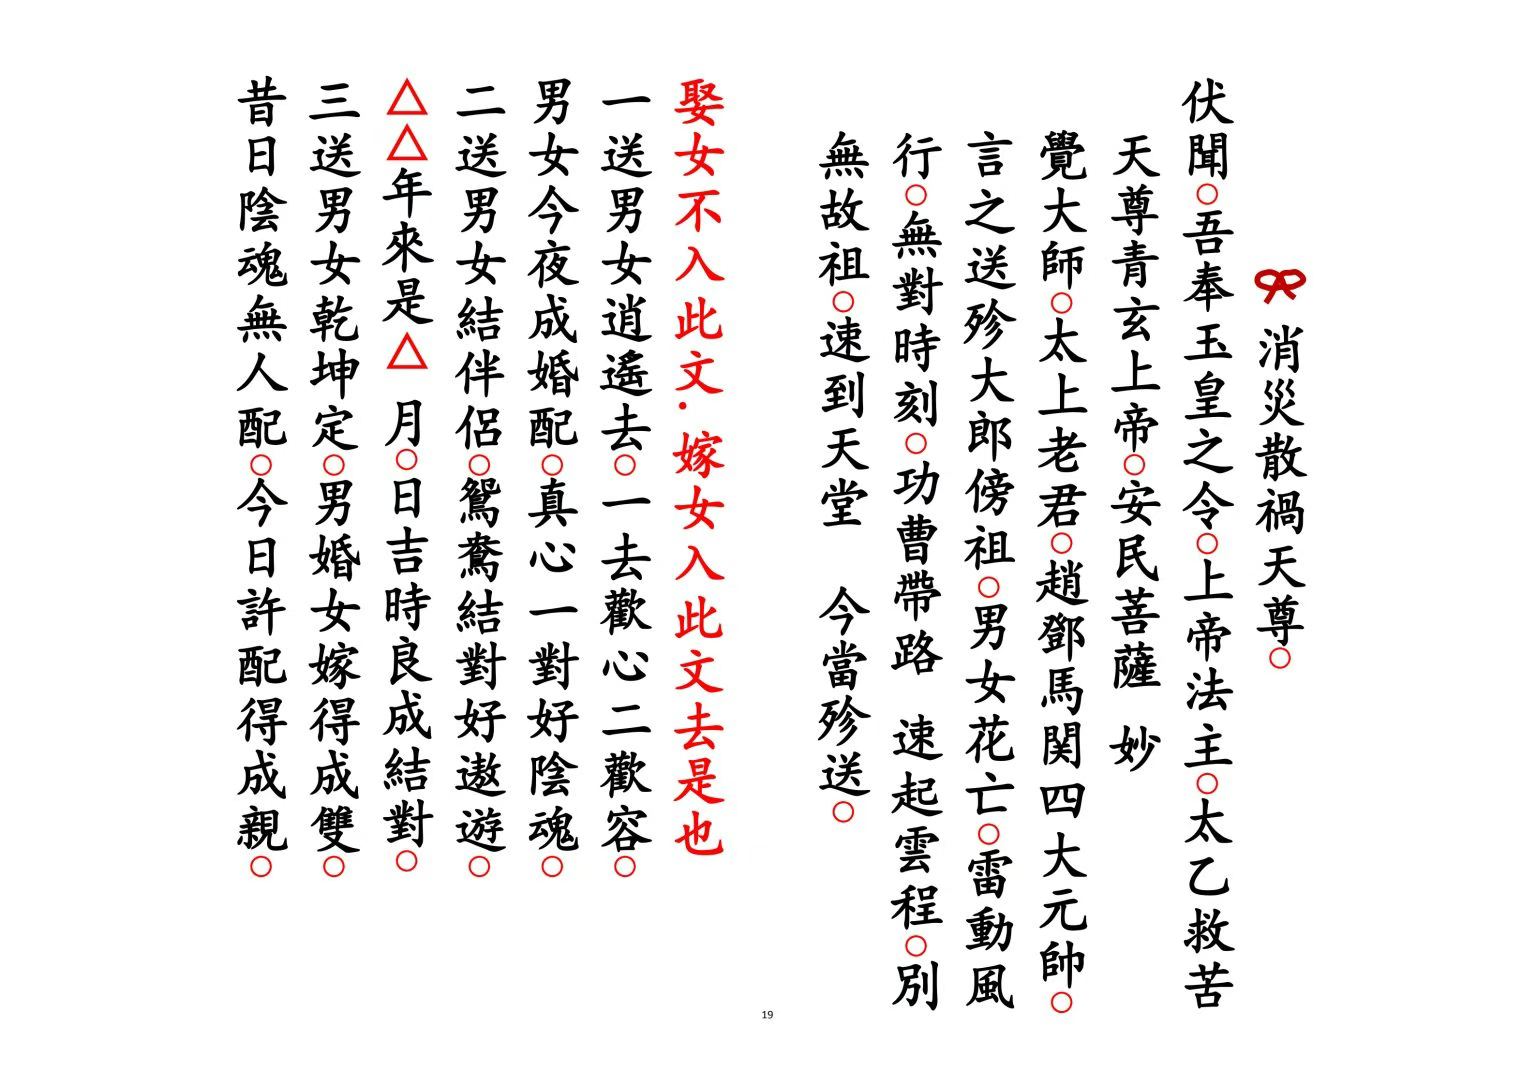 消災散禍天尊○
伏聞○吾奉玉皇之令○上帝法主○太乙救苦
天尊青玄上帝○安民菩薩 妙
覺大師○太上老君○趙鄧馬関四大元帥○
言之送殄大郎傍祖○男女花亡○雷動風
行○無對時刻○功曹帶路 速起雲程○別
無故祖○速到天堂 今當殄送○
娶女不入此文.嫁女入此文去是也
一送男女逍遙去○一去歡心二歡容○
男女今夜成婚配○真心一對好陰魂○
二送男女結伴侶○鴛鴦結對好遨遊○
△△年來是△ 月○日吉時良成結對○
三送男女乾坤定○男婚女嫁得成雙○
昔日陰魂無人配○今日許配得成親○
19